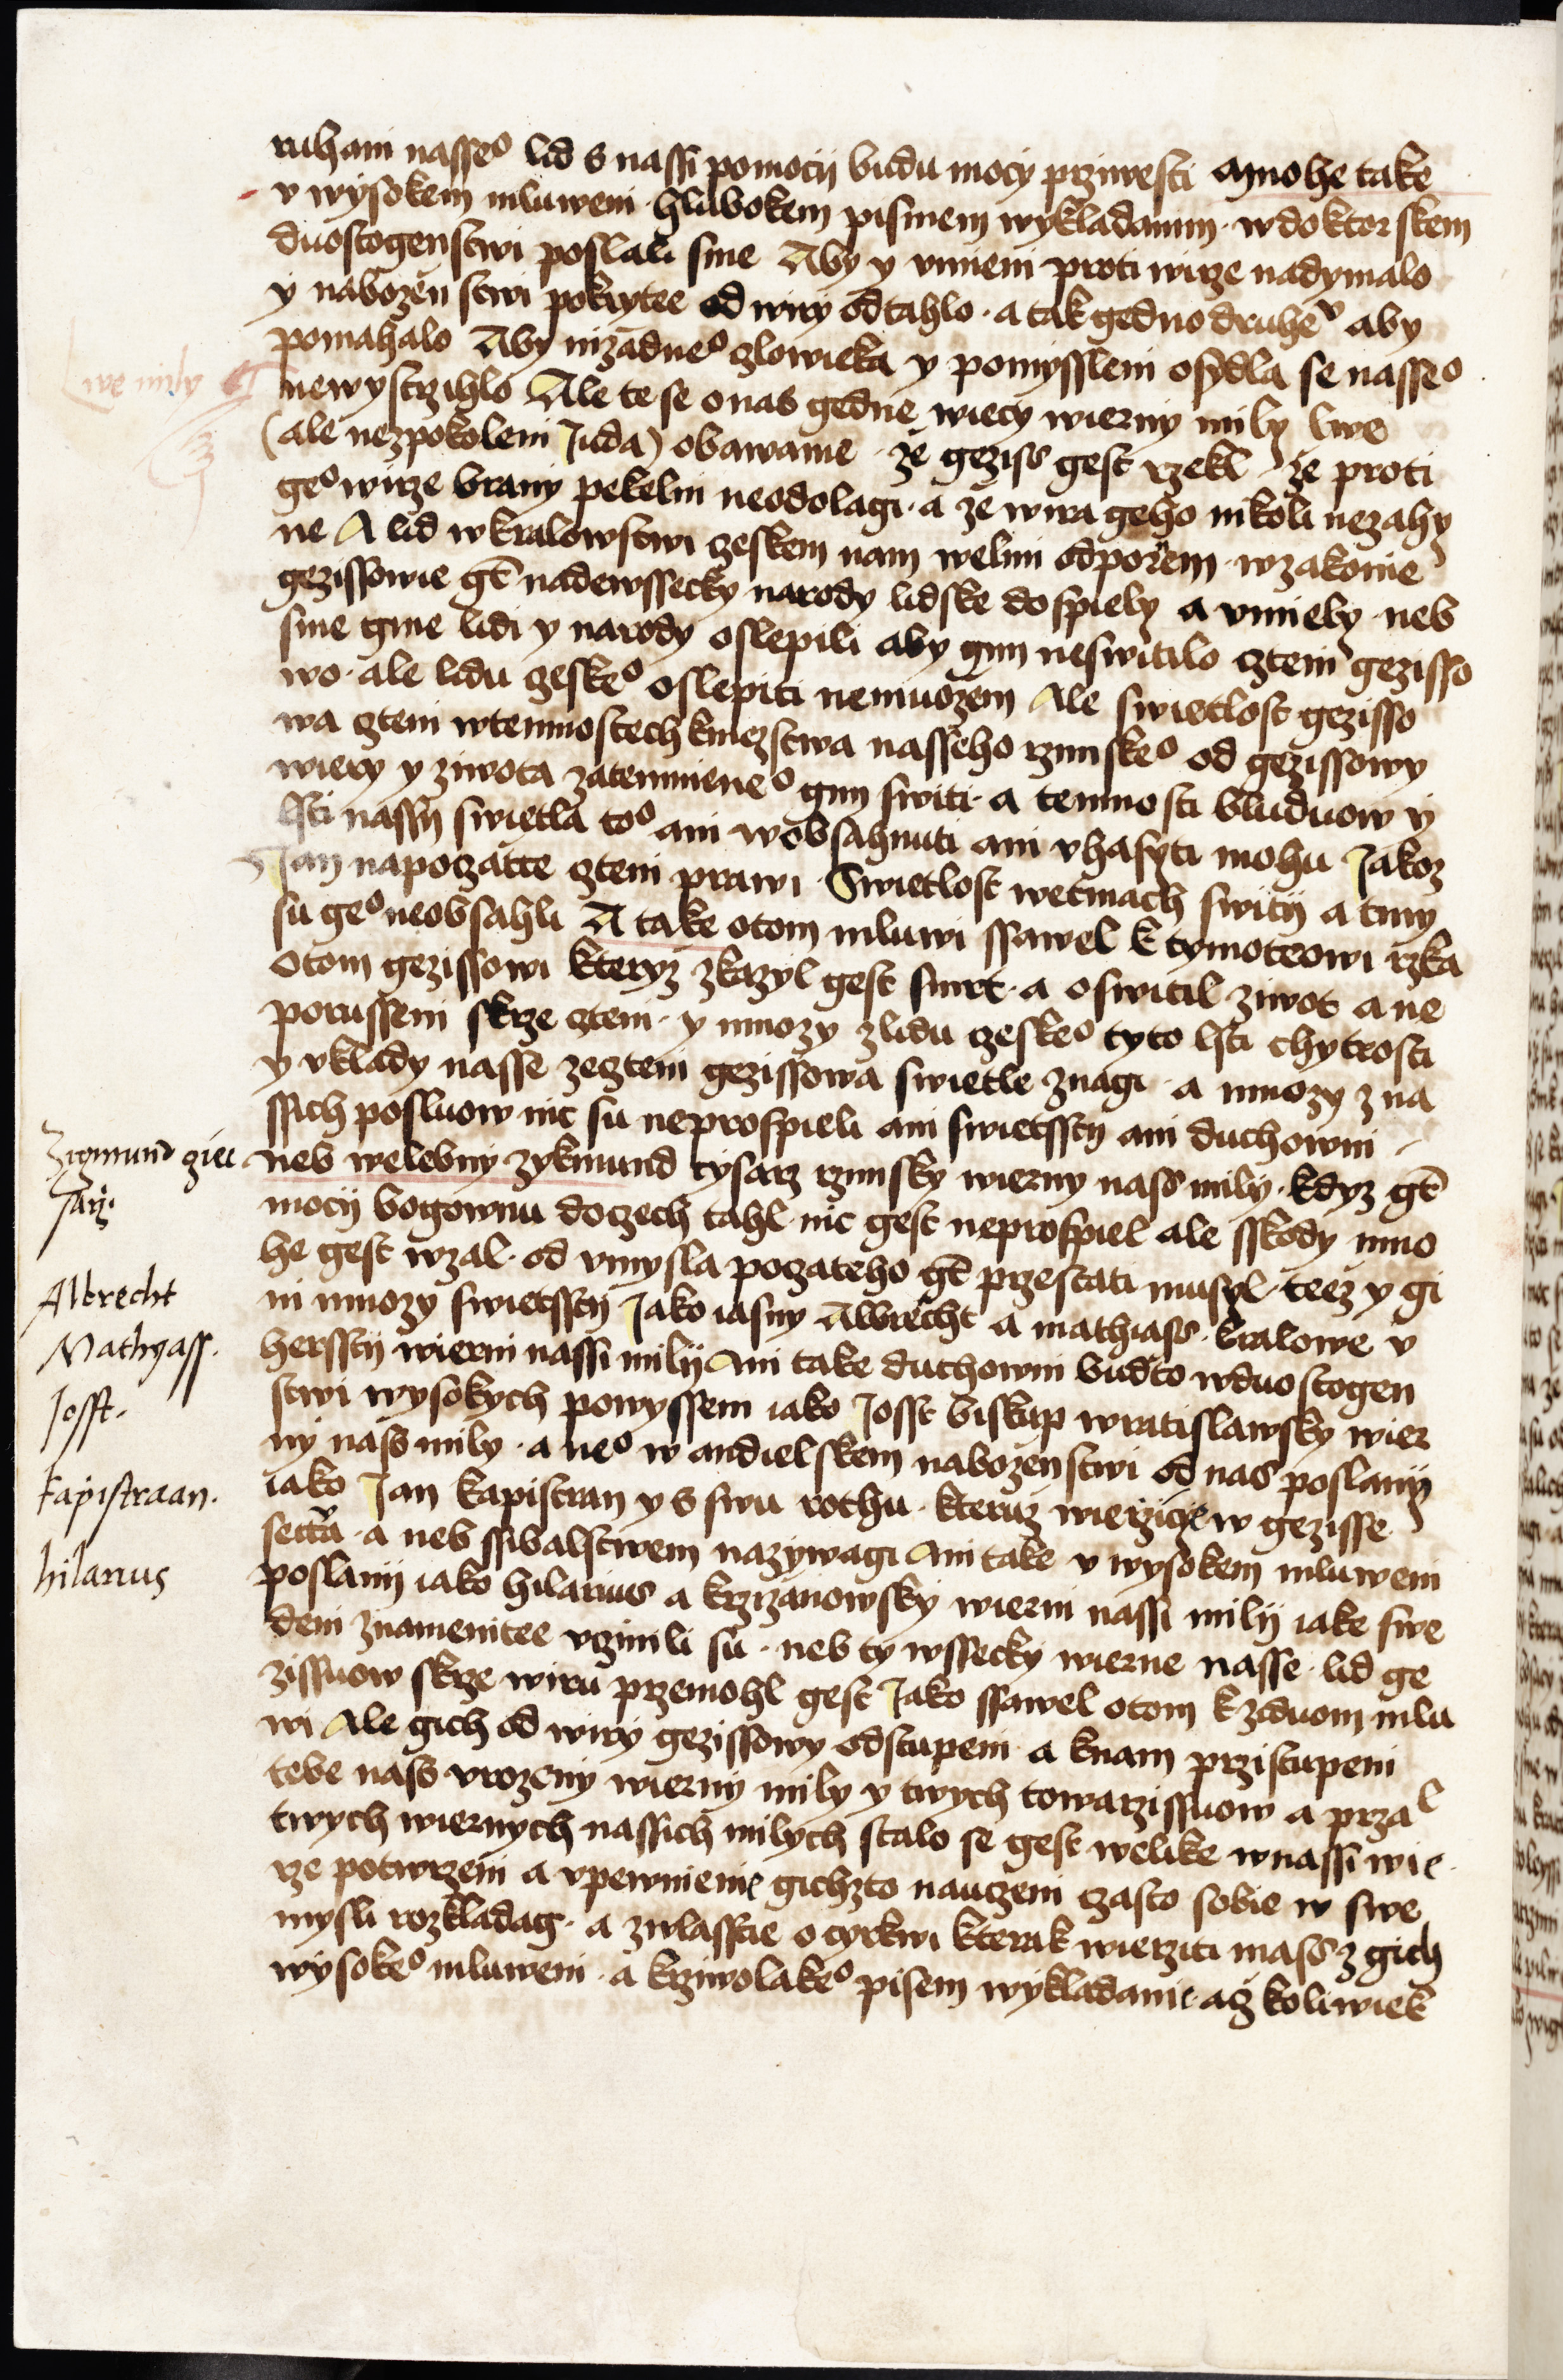 ruhani nasseº lid s nassi pomocij budu mocy prziwesti Mnohe take
v wysokem mluweni hlubokem pismem wykladanim · w doktorskem
duostogenstwi poslali sme Aby y vmieni proti wirze nadymalo
y nabozenstwi pokrytee od wiry odtahlo · a tak gedno druheᵛ aby
pomahalo Aby nizadneº czlowieka y pomyssleni osydla se nasseº
Lwe mily
newystrzihlo Ale te se o nas gedne wiecy wierny mily lwe
(ale nez pokoleni Juda) obawame · ze geziss gest rzekl ze proti
geº wirze brany pekelni neodolagi · a ze wira geho nikoli nezahy
ne A lid w kralowstwi czeskem nam welmi odporem · w zakonie
gezissowie gt nadewssecky narody lidske dospiely a vmiely neb
sme gine lidi y narody oslepili aby gim neswitilo cztenij gezisso
wo · ale lidu czeskeº oslepiti nemuozem Ale swietlost gezisso
wa czteni w temnostech kniezstwa nasseho rzimskeº od gezissowy
wiery y ziwota zatemnieneº gim switi · a temnosti bluduow y
lsti nassij swietla toº ani w obsahnuti ani vhasyti mohu Jakoz
Jan na poczatce czteni prawi · Swietlost we tmach switij a tmy
su geº neobsahli A take o tom mluwi ssawel k tymoteowi rzka
o tom gezissowi kteryz zkazyl gest smrt · a oswitil ziwot a ne
porusseni skrze czteni · y mnozy z lidu czeskeº tyto lsti chytrosti
y vklady nasse ze czteni gezissowa swietle znagi · a mnozy z na
ssich posluow nic su neprospieli ani swietsstij ani duchowni
Zigmund giec
sarz.
neb welebny zykmund cysarz rzimsky wierny nass mily · kdyz gt
mocij bogownu do czech tahl nic gest neprospiel ale sskody mno
he gest wzal · od vmysla poczateho gt przestati musyl · teez y gi
Albrecht
ni mnozy swietsstij Jako iasny Albrecht a mathiass · kralowe v
Mathyass.
hersstij wierni nassi milij Ani take duchowni budto w duostogen
Josst.
stwi wysokych powyssem iako Josst biskup wratislawsky wier
ny nass mily · a neº w andielskem nabozenstwi od nas poslanij
Kapistraan.
iako Jan kapistran y s swu rothu · kteruz wierzicze w gezisse
secttu · a neb ssibalstwem nazywagi Ani take v wysokem mluweni
hilarius
poslanij iako hilarius a krzizanowsky wierni nassi milij iake swe
deni znamenitee vczinili su · neb ty wssecky wierne nasse · lid ge
zissuow skrze wiru przemohl gest Jako ssawel o tom k ziduom mlu
wi Ale gich od wiry gezissowy odstupeni a k nam przistupeni
tebe nass vrozeny wierny mily y twych towarzissuow a prza l
twych wiernych nassich milych stalo se gest welike w nassi wie
rze potwrzeni a vpewnienie gichzto nauczeni czasto sobie w swe
mysli rozkladag · a zwlasstie o cyrkwi kterak wierziti mass z gich
wysokeº mluweni · a krziwolakeº pisem wykladanie acz koliwiek